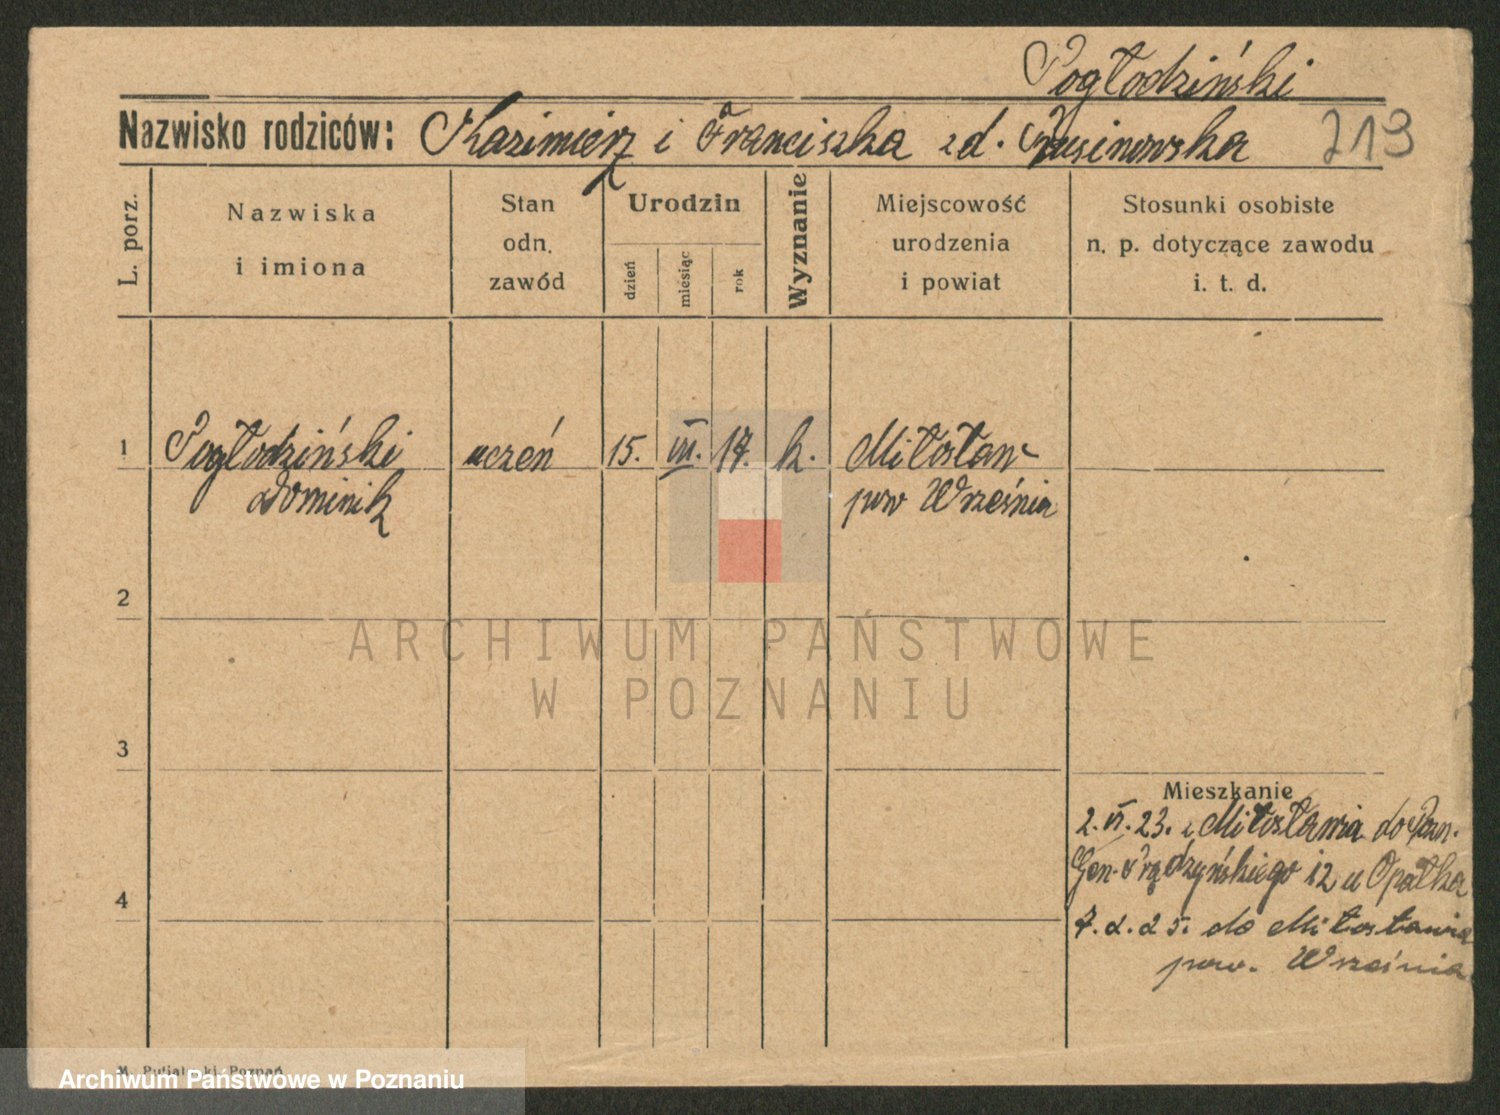 Pogłodziński
Nazwisko rodziców: Kazimierz i Franciszka z d. 213
L. porz.
Nazwiska
i imiona
Stan
odn.
zawód
Urodzin
dzień
miesiąc
rok
Wyznanie
Miejscowość
urodzenia
i powiat
Stosunki osobiste
n. p. dotyczące zawodu
i. t. d.
1 Pogłodziński uczeń 15. VII. 17. k. Miłosław
Dominik pow Września
2
3
4
ARCHIWUM PAŃSTWOWE
W POZNANIU
Mieszkanie
2. VI. 23. z Miłosławia do Pozn.
Gen. Prądzyńskiego 12 u Opałka
7. 2. 25. do Miłosławia
pow. Września
Poznań
Archiwum Państwowe w Poznaniu